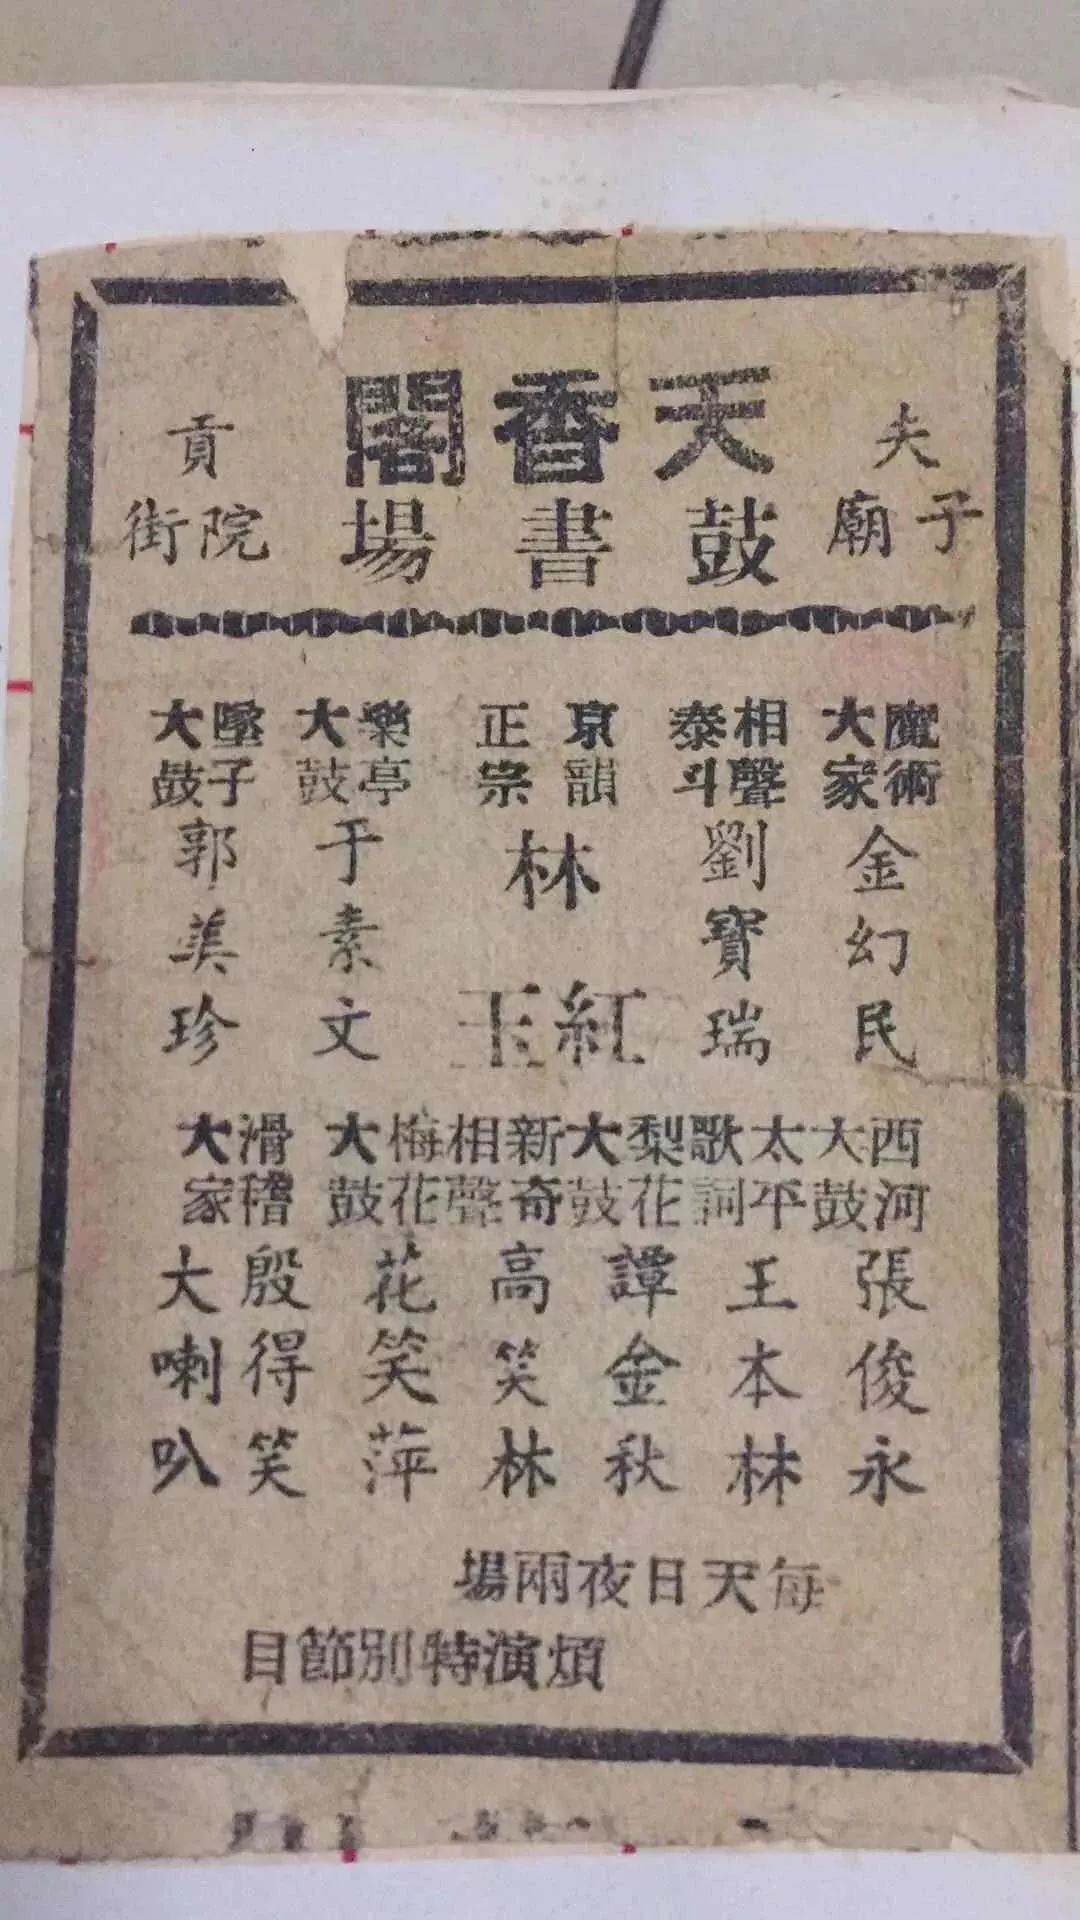 夫子廟
天香閣
鼓書場
貢院街
魔術大家
金幻民
相聲泰斗
劉寶瑞
京韻正宗
林紅玉
樂亭大鼓
于素文
墜子大鼓
郭美珍
西河大鼓
張俊永
太平歌詞
王本林
梨花大鼓
譚金秋
新奇相聲
高笑林
梅花大鼓
花笑萍
滑稽大家
殷得笑
大喇叭
每天日夜兩場
煩演特別節目